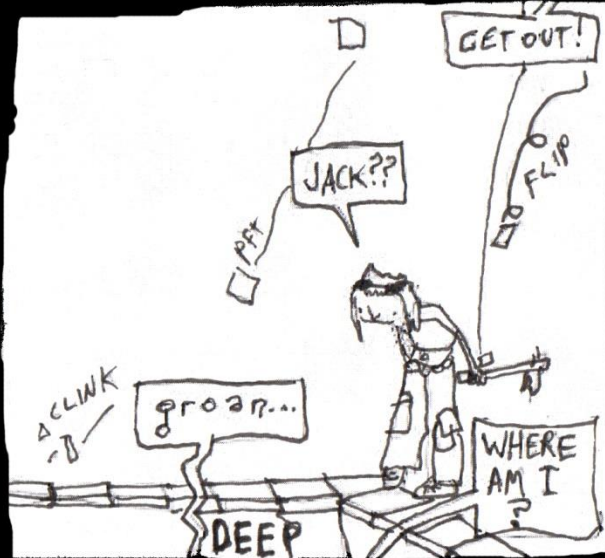 GET OUT!
JACK??
FLIP
PFT
CLINK
groan...
WHERE
AM I
?
DEEP